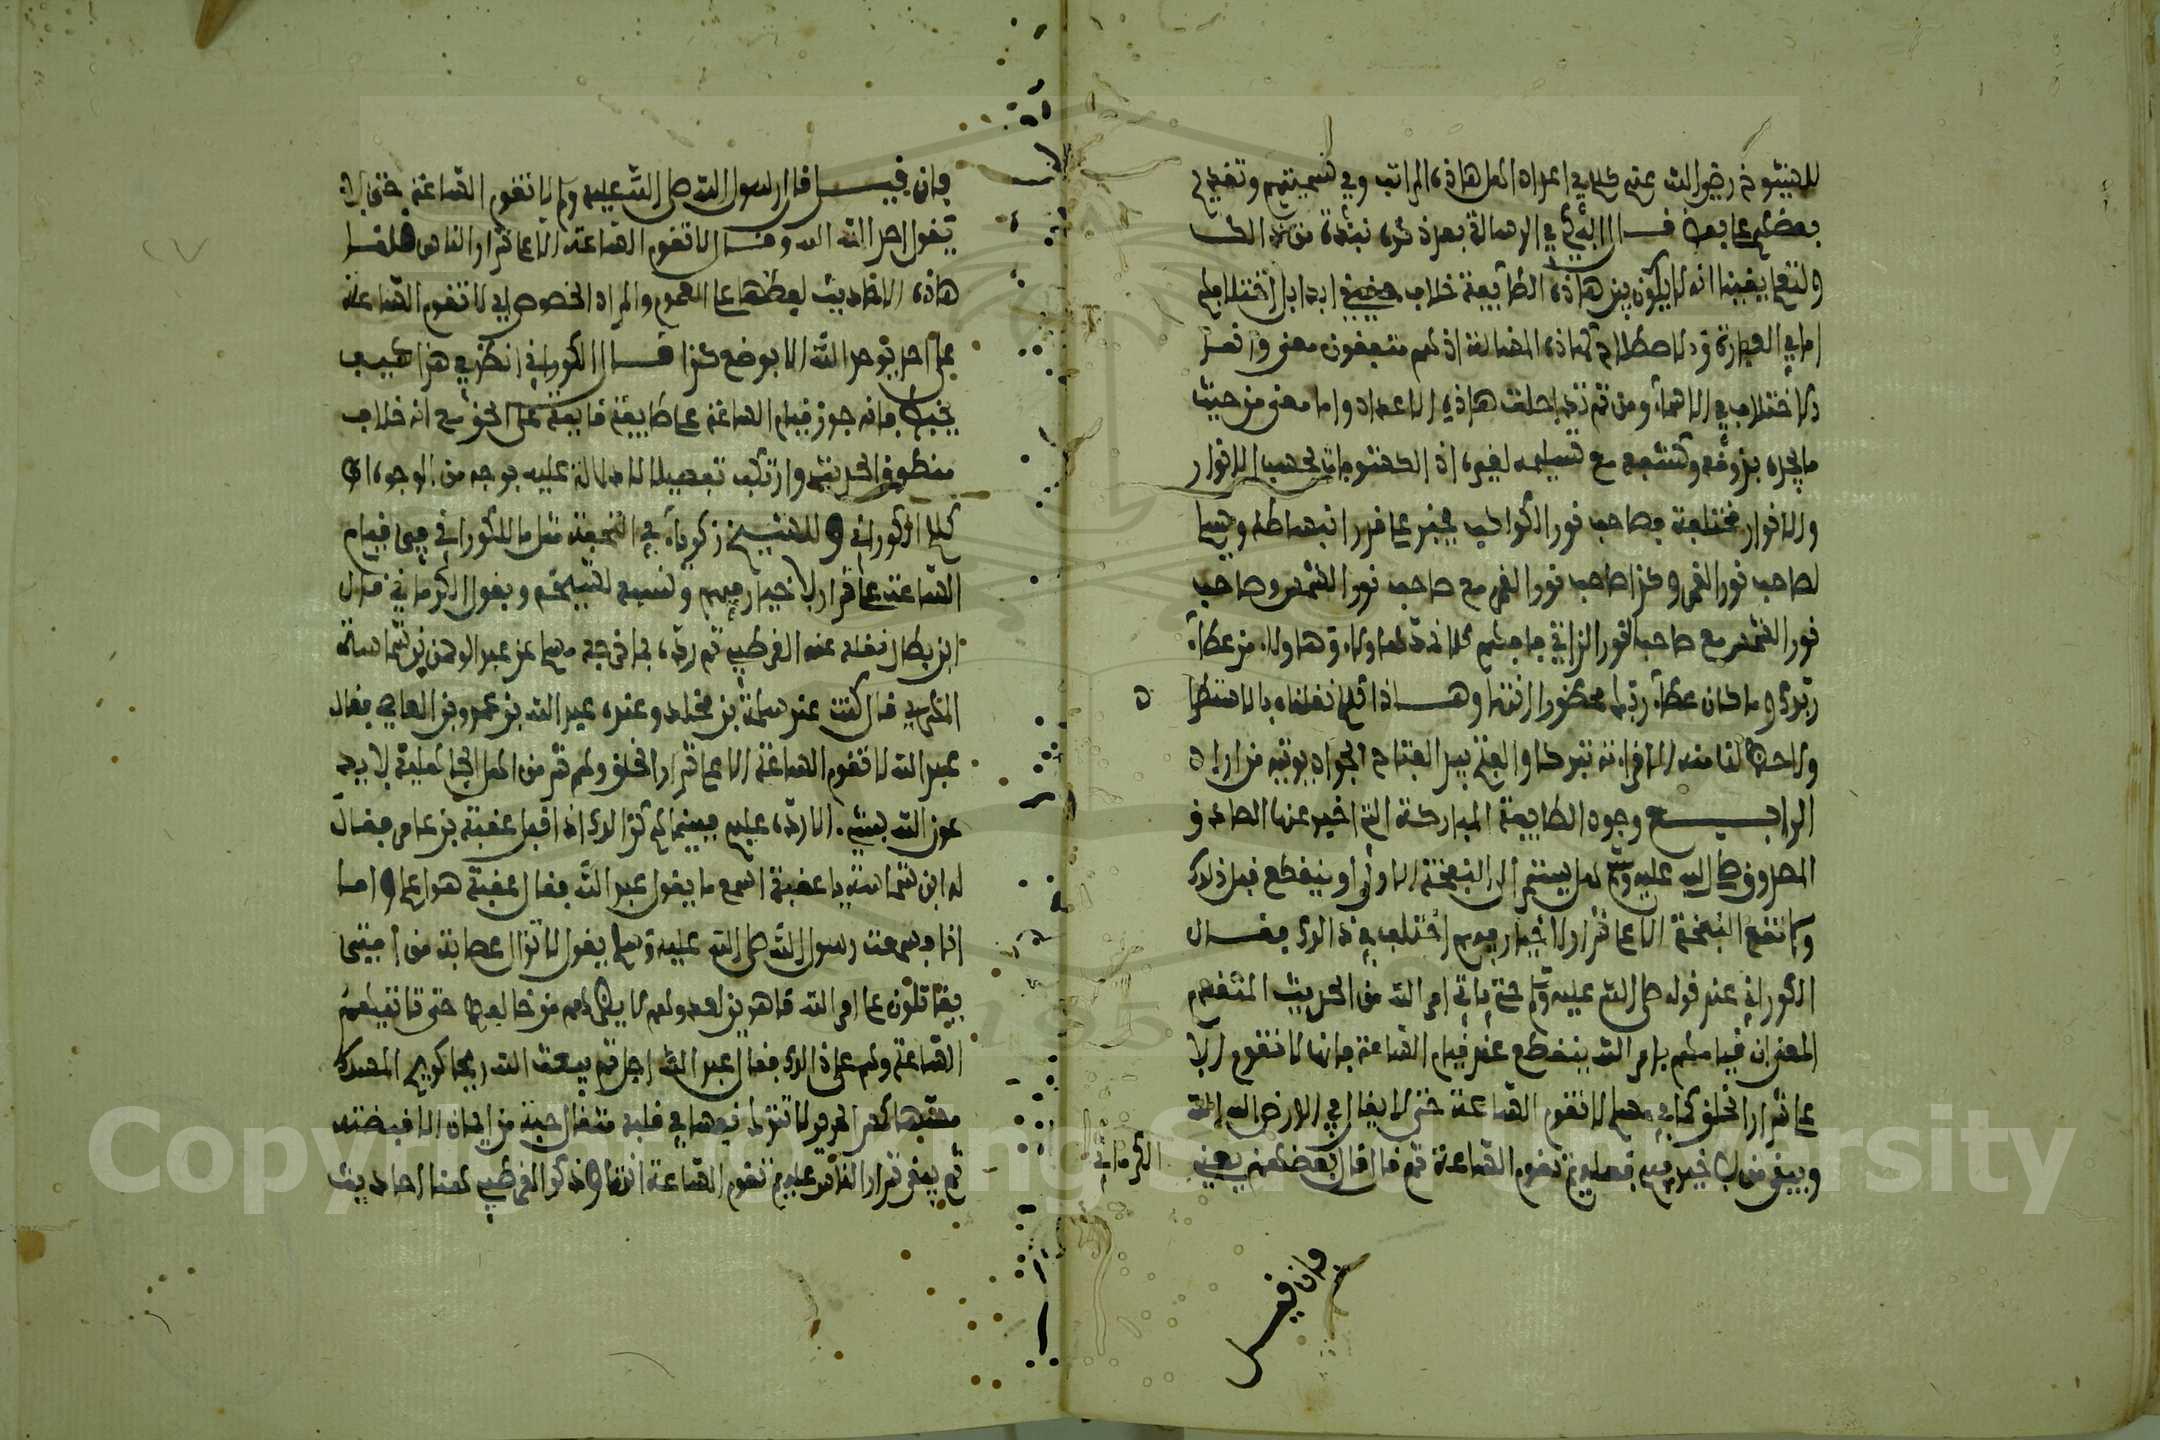 للشيوخ رضي الله عنهم كلام في اعداد اهل هاذه المراتب وفي تسميتهم وتفضيل
بعضهم على بعض قال اليافعي في الرسالة بعد ذكره نبذة من ذالك
ولتعلم يقينا انه لا يكون بين هاذه الطايفة خلاف حقيقي ابدا بل اختلافهم
اما في العبارة ولاصطلاح كهاذه المخالفة اذ هم متفقون معنى واقعا
ولا ختلاف في الاسماء ومن ثم تجد اختلفت هاذه الاعداد واما معنى من حيث
ما يجده بذوقه وكشفه مع تسليمه لغيره اذ الكشوفات بحسب الانوار
والانوار مختلفة فصاحب نور الكواكب يخبر على قدر انبساطه ويسلم
لصاحب نور القمر وكذا صاحب نور القمر مع صاحب نور الشمس وصاحب
نور الشمس مع صاحب النور الذاتي فافهم كلا نمد هاولاء وهاولاء من عطاء
ربك وما كان عطاء ربك محظورا انتهى وهاذا كلام نقلناه بالاستطراد
ولاحظ لنا منه الا قراءته تبركا والفتح بيد الفتاح الجواد يوتيه من اراد
الرابع وجود الطايفة المباركة التي اخبر عنها الصادق
المصدوق صلى الله عليه وسلم هل يستمر الى النفخة الاولى او ينقطع قبل ذلك
ولا تقع النفخة الا على شرار لا خير فيهم اختلف في ذالك فقال
الكوراني عند قوله صلى الله عليه وسلم حتى ياتي امر الله من الحديث المتقدم
المعنى ان قيامهم بامر الله ينقطع عند قيام الساعة فانها لا تقوم الا
على شرار الخلق كما في مسلم لا تقوم الساعة حتى لا يقال في الارض الله الله
ويبقى من لا خير فيهم فعليهم تقوم الساعة ثم قال قال بعضهم يعني
الكرماني
فان قيل
فان قيل قال رسول الله صلى الله عليه وسلم لا تقوم الساعة حتى لا
يقول احد الله الله وقال لا تقوم الساعة الا على شرار الناس قلنا
هاذه الاحاديث لفظها على العموم والمراد الخصوص اي لا تقوم الساعة
على احد يوحد الله الا بوضع كذا قال الكوراني انظر في هذا كيف
يخبط فانه جوز قيام الساعة على طايفة قايمة على الحق مع انه خلاف
منطوق الحديث وارتكب تفصيلا لا دلالة عليه بوجه من الوجوه اه
كلام الكوراني وللشيخ زكرياء في التحفة مثل ما للكوراني في قيام
الساعة على شرار لا خير فيهم ونسبه لشيخه وبقول الكرماني قال
ابن بطال نقله عنه القرطبي ثم رده بما خرجه مسلم عن عبد الرحمن بن شماسة
المهري قال كنت عند مسلمة بن مخلد وعنده عبد الله بن عمرو بن العاصي فقال
عبد الله لا تقوم الساعة الا على شرار الخلق ولهم شر من اهل الجاهلية لا يد
عون الله بشيء الا رده عليهم فبينما هم كذالك اذ اقبل عقبة بن عامر فقال
له ابن شماسة يا عقبة اسمع ما يقول عبد الله فقال عقبة هو اعلم واما
انا فسمعت رسول الله صلى الله عليه وسلم يقول لا تزال عصابة من امتي
يقاتلون على امر الله قاهرين لعدوهم لا يضرهم من خالفهم حتى تاتيهم
الساعة وهم على ذالك فقال عبد الله اجل ثم يبعث الله ريحا كريح المسك
مسها كمس الحرير لا تترك نفسا في قلبه مثقال حبة من ايمان الا قبضته
ثم يبقى شرار الناس عليهم تقوم الساعة انتهى وذكر القرطبي هنا احاديث